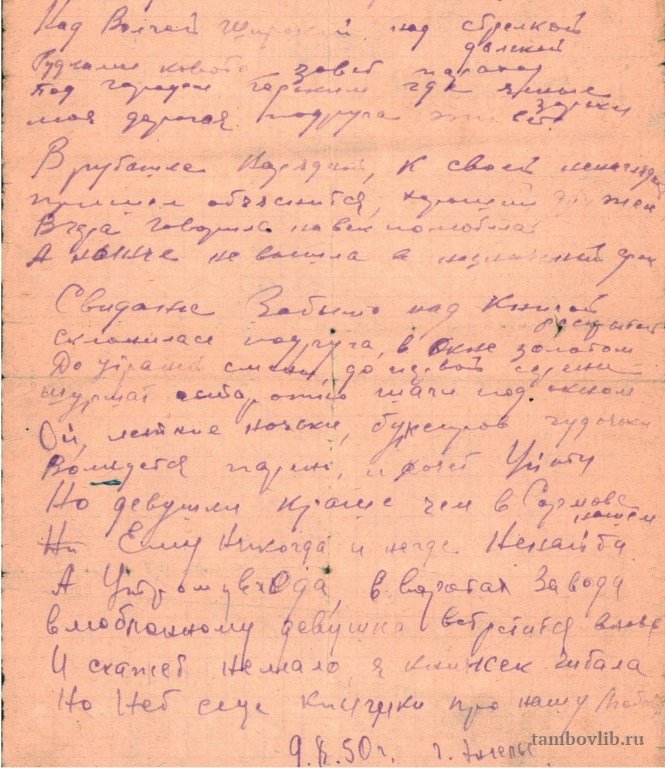 Над Волгой широкой, над стрелкой
далекой
Гудками кого-то зовет пароход
Под городом Горьким где ясные
зорьки
моя дорогая подруга живет
В рубашке нарядной, к своей ненагляд
пришел объяснится, хороший дружек
Вчера говорила навек полюбила
А нынче не вышла в назначенный
Свиданье Забыто над Книгой
раскрытой
склонилась подруга, в окне золотом
До утренней смены, до первой сирены
шуршат осторожно шаги под окном
Ой, летние ночки, буксиров гудочки
Волнуется парень, и хочет Уйти
Но девушки краше чем в Сормове
нашем
Ему Никогда и негде Ненайти
А Утром у входа, в воротах Завода
влюбленному девушка встретится вновь
И скажет немало, я книжек читала
Но Нет еще книжки про нашу Любовь
50 г. г.
tambovlib.ru